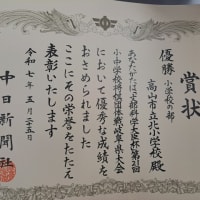 賞状
優勝 小学校の部
高山市立北小学校殿
あなたがたは文部科学大臣杯第21回
小中学校将棋団体戦岐阜県大会
において優秀な成績を
おさめられました
ここにその栄誉をたたえ
表彰いたします
令和七年五月二十五日
中日新聞社